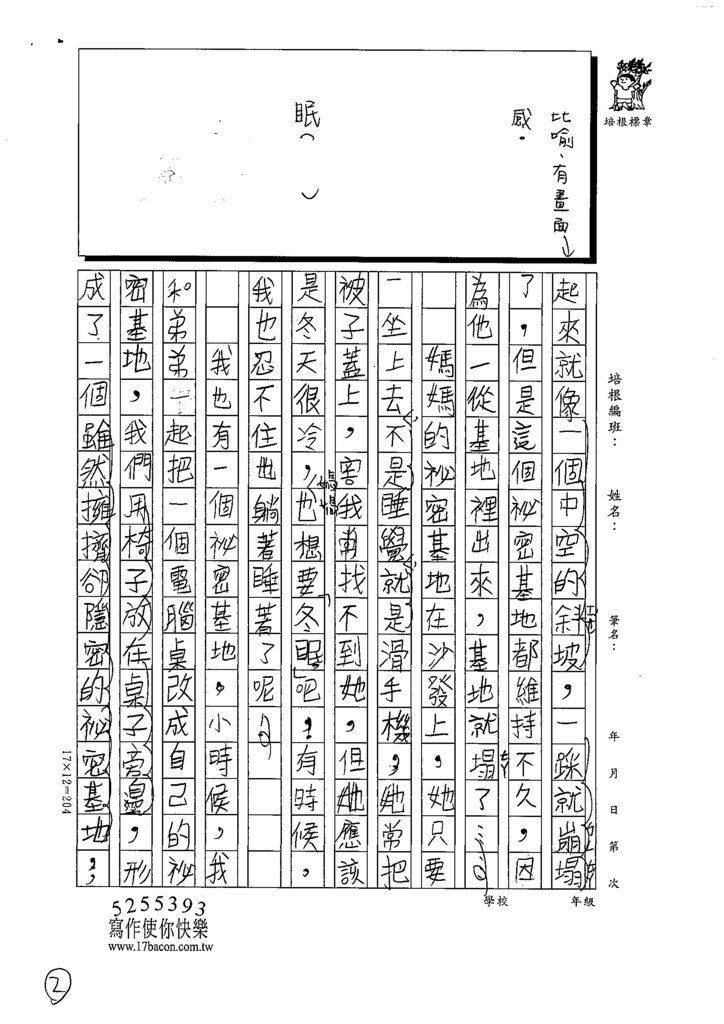 培根標章
比喻、有畫面→
感。
眠( )
培根編班：
姓名：
筆名：
年 月 日 第 次
年級
學校
起來就像一個中空的斜坡，一踩就崩塌
了，但是這個祕密基地都維持不久，因
為他一從基地裡出來，基地就塌了…。
媽媽的祕密基地在沙發上，她只要
一坐上去不是睡覺就是滑手機，她常把
被子蓋上，害我常找不到她，但她應該
是冬天很冷，也想要「冬眠」吧！有時候，
媽媽
我也忍不住也躺著睡著了呢。
我也有一個祕密基地。小時候，我
和弟弟一起把一個電腦桌改成自己的祕
密基地，我們用椅子放在桌子旁邊，形
成了一個雖然擁擠卻隱密的祕密基地；
17×12=204
5255393
寫作使你快樂
www.17bacon.com.tw
2